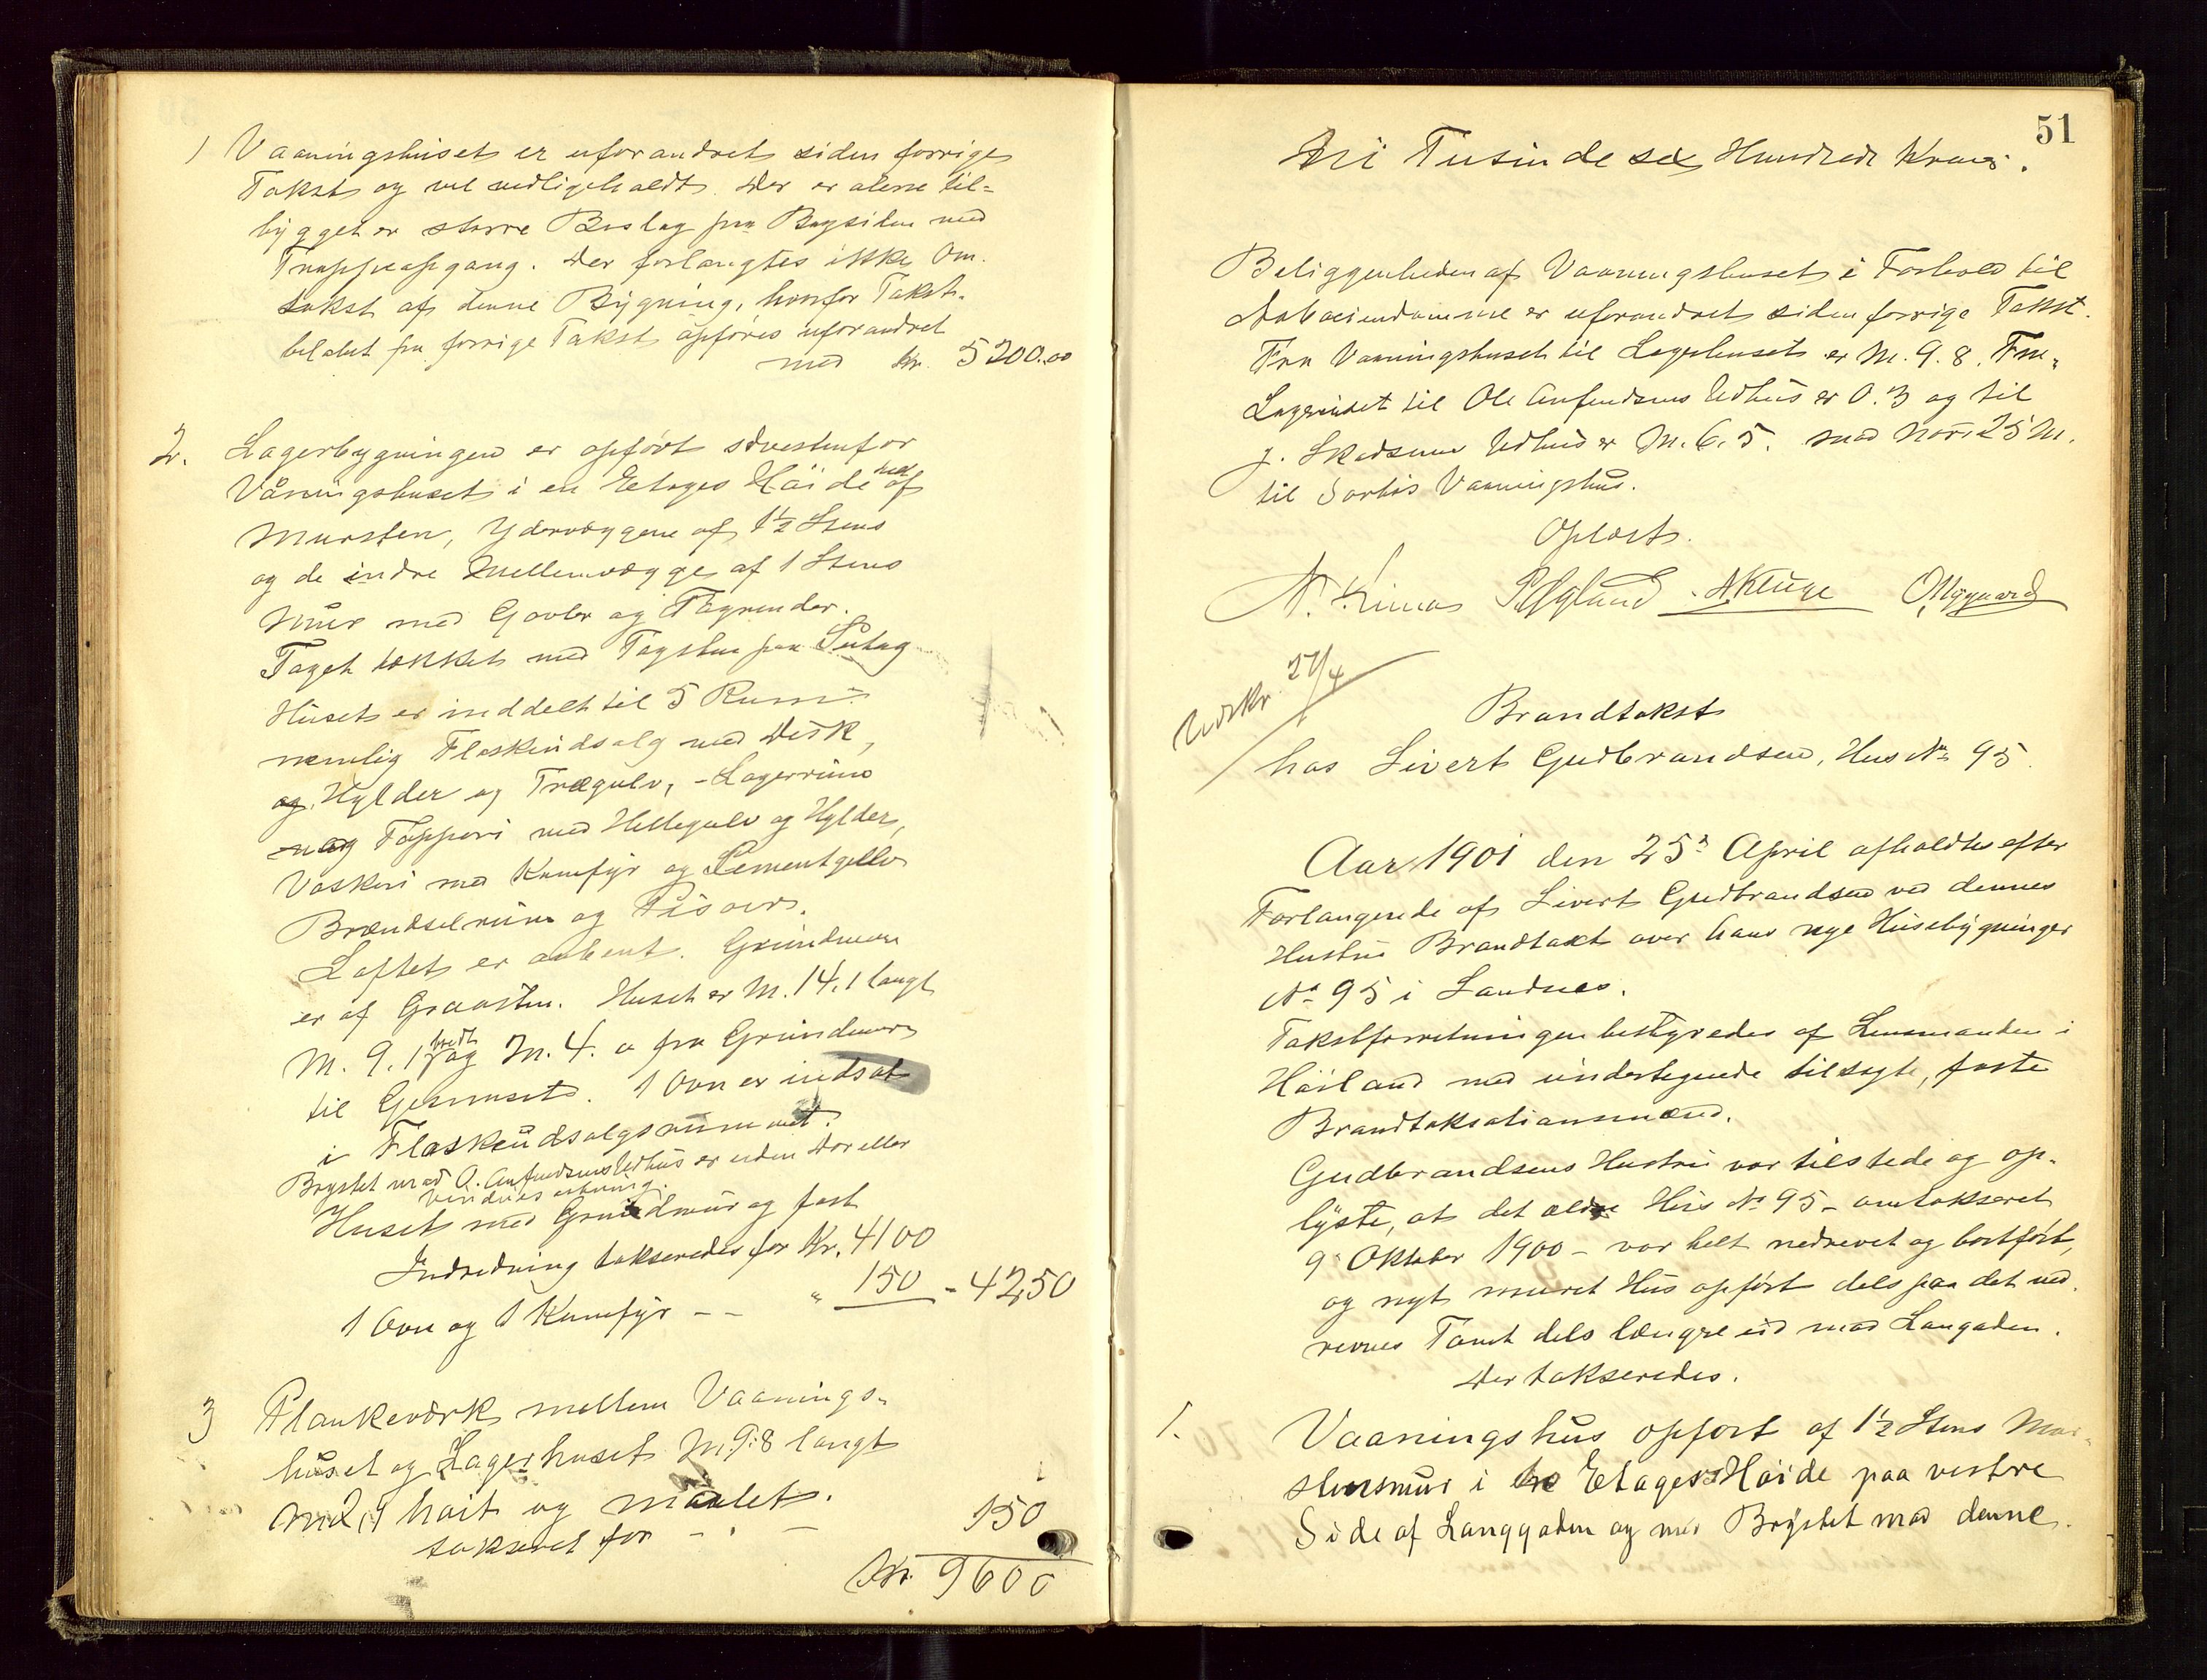 1) Vaaningshuset er uforandret siden forrige
Takst og vel vedligeholdt. Der er alene til-
bygget er større Bislag paa Bagsiden med
Trappeopgang. Der forlangtes ikke Om-
takst af denne Bygning, hvorfor Takst-
beløbet fra forrige Takst opføres uforandret
med Kr. 5200.00
2. Lagerbygningen er opført søvestenfor
Våningshuset i en Etages Höide med af
Mursten, Ydervæggene af 1½ Stens
og de indre Mellemvægge af 1 Stens
Mur med Gavler og Tagrender.
Taget tækket med Tagsten paa Sutag
Huset er inddelt til 5 Rum:
nemlig Flaskeudsalg med Disk,
og Hylder og Trægulv, - Lagerrum
og Tapperi med Hellegulv og Hylder,
Vaskeri med Komfyr og Cementgulv
Brændselrum og Pisoir.
Loftet er aabent. Grundmuren
er af Graasten. Huset er M. 14.1 langt
M. 9.1 bredt og M. 4.0 fra Grundmuren
til Gesimset. 1 Ovn er indsat
i Flaskeudsalgsrummet.
Brystet mod O. Anfindsens Udhus er uden Dør eller
Vindues aabning.
Huset med Grundmur og fast
Indredning takseredes for Kr. 4100
1 Ovn og 1 Komfyr - - " 150 - 4250
3 Plankeværk mellem Vaanings-
huset og Lagerhuset M. 9.8 langt
M. 2,1 høit og malet.
takseret for - - - 150
Kr. 9600
51
Ni Tusinde sex Hundrede Kroner.
Beliggenheden af Vaaningshuset i Forhold til
Naboeiendomme er uforandret siden forrige Takst.
Fra Vaaningshuset til Lagerhuset er M. 9.8. Fra
Lagerhuset til Ole Anfindsens Udhus er 0.3 og til
J. Skadsems Udhus er M. 6.5. mod Nord 25 M.
til Vaaningshus.
Oplæst.
A. Kluge O. Nygaard
Udskr. 27/4
Brandtakst
hos Sivert Gudbrandsen, Hus No 95.
Aar 1901 den 25de April afholdtes efter
Forlangende af Sivert Gudbrandsen ved dennes
Hustru Brandtakst over hans nye Husebygninger
No 95 i Sandnes.
Takstforretningen bestyredes af Lensmanden i
Höiland med undertegnede tilsagte, faste
Brandtaksationsmænd.
Gudbrandsens Hustru var tilstede og op-
lyste, at det ældre Hus No 95 - omtakseret
9 Oktober 1900 - var helt nedrevet og bortført,
og nyt muret Hus opført dels paa det ned-
revnes Tomt dels længre ud mod Langgaden.
Der takseredes.
1. Vaaningshus opført af 1½ Stens Mur-
stensmur i to Etages Höide paa vestre
Side af Langgaden og med Brystet mod denne.